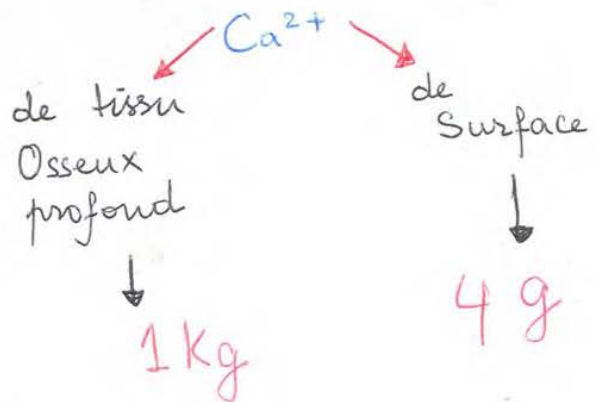 Ca²⁺
de tissu
Osseux
profond
1 Kg
de
Surface
4 g